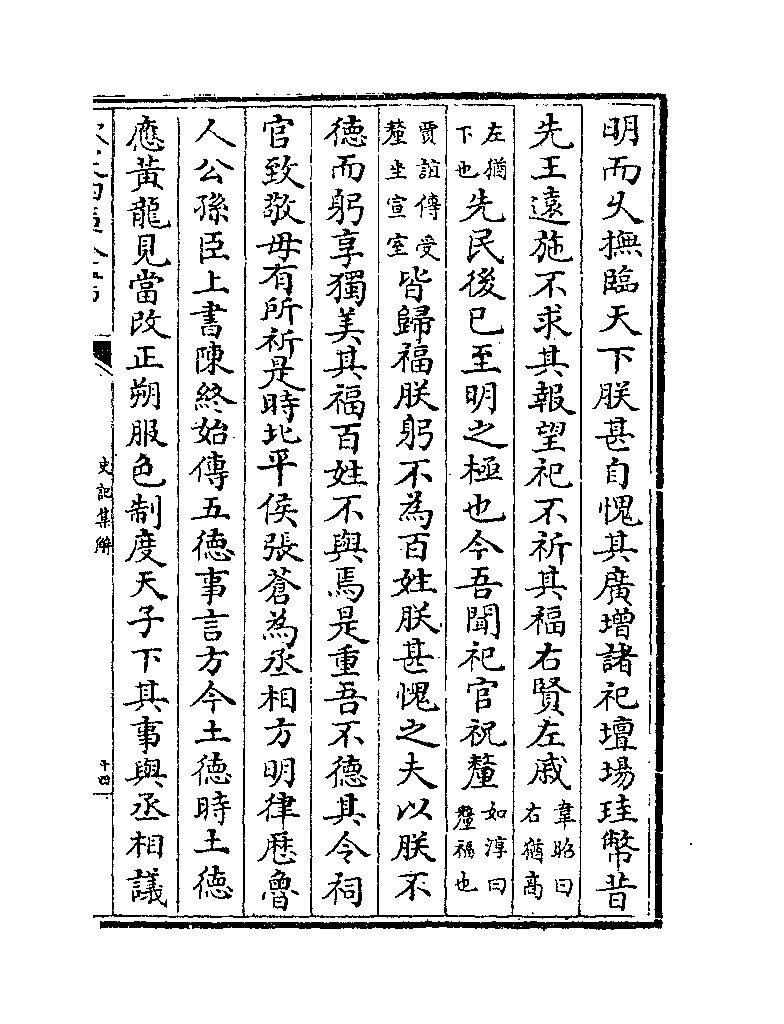 明而乆撫臨天下朕甚自愧其廣增諸祀壇場珪幣昔
先王遠施不求其報望祀不祈其福右賢左戚韋昭曰右猶高
左猶下也先民後已至明之極也今吾聞祀官祝釐如淳曰釐福也
賈誼傳受釐坐宣室皆歸福朕躬不為百姓朕甚愧之夫以朕不
德而躬享獨美其福百姓不與焉是重吾不德其令祠
官致敬毋有所祈是時北平侯張蒼為丞相方明律厯魯
人公孫臣上書陳終始傳五德事言方今土德時土德
應黃龍見當改正朔服色制度天子下其事與丞相議
史記集解
十四